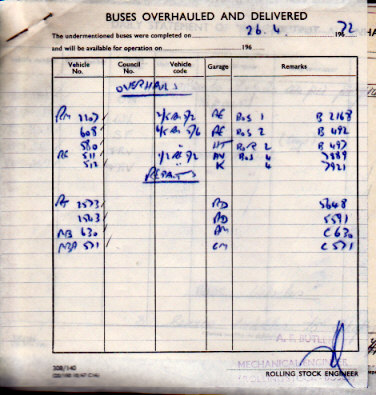 BUSES OVERHAULED AND DELIVERED
The undermentioned buses were completed on 26.4. 1972
and will be available for operation on 196
Vehicle No. Council No. Vehicle code Garage Remarks
OVERHAULS
RM 2207 AE BoS 1 B 2168
608 AE BoS 2 B 492
580 HT BoR 2 B 497
511 AV BoS 4
512 K 4 7921
REPAINTS
RT 2573 AD 5648
1563 AD 5591
MB 630 AM C 630
MBA 571 CM C 571
A. F. BUTLER
MECHANICAL ENGINEER
ROLLING STOCK ENGINEER
308/140